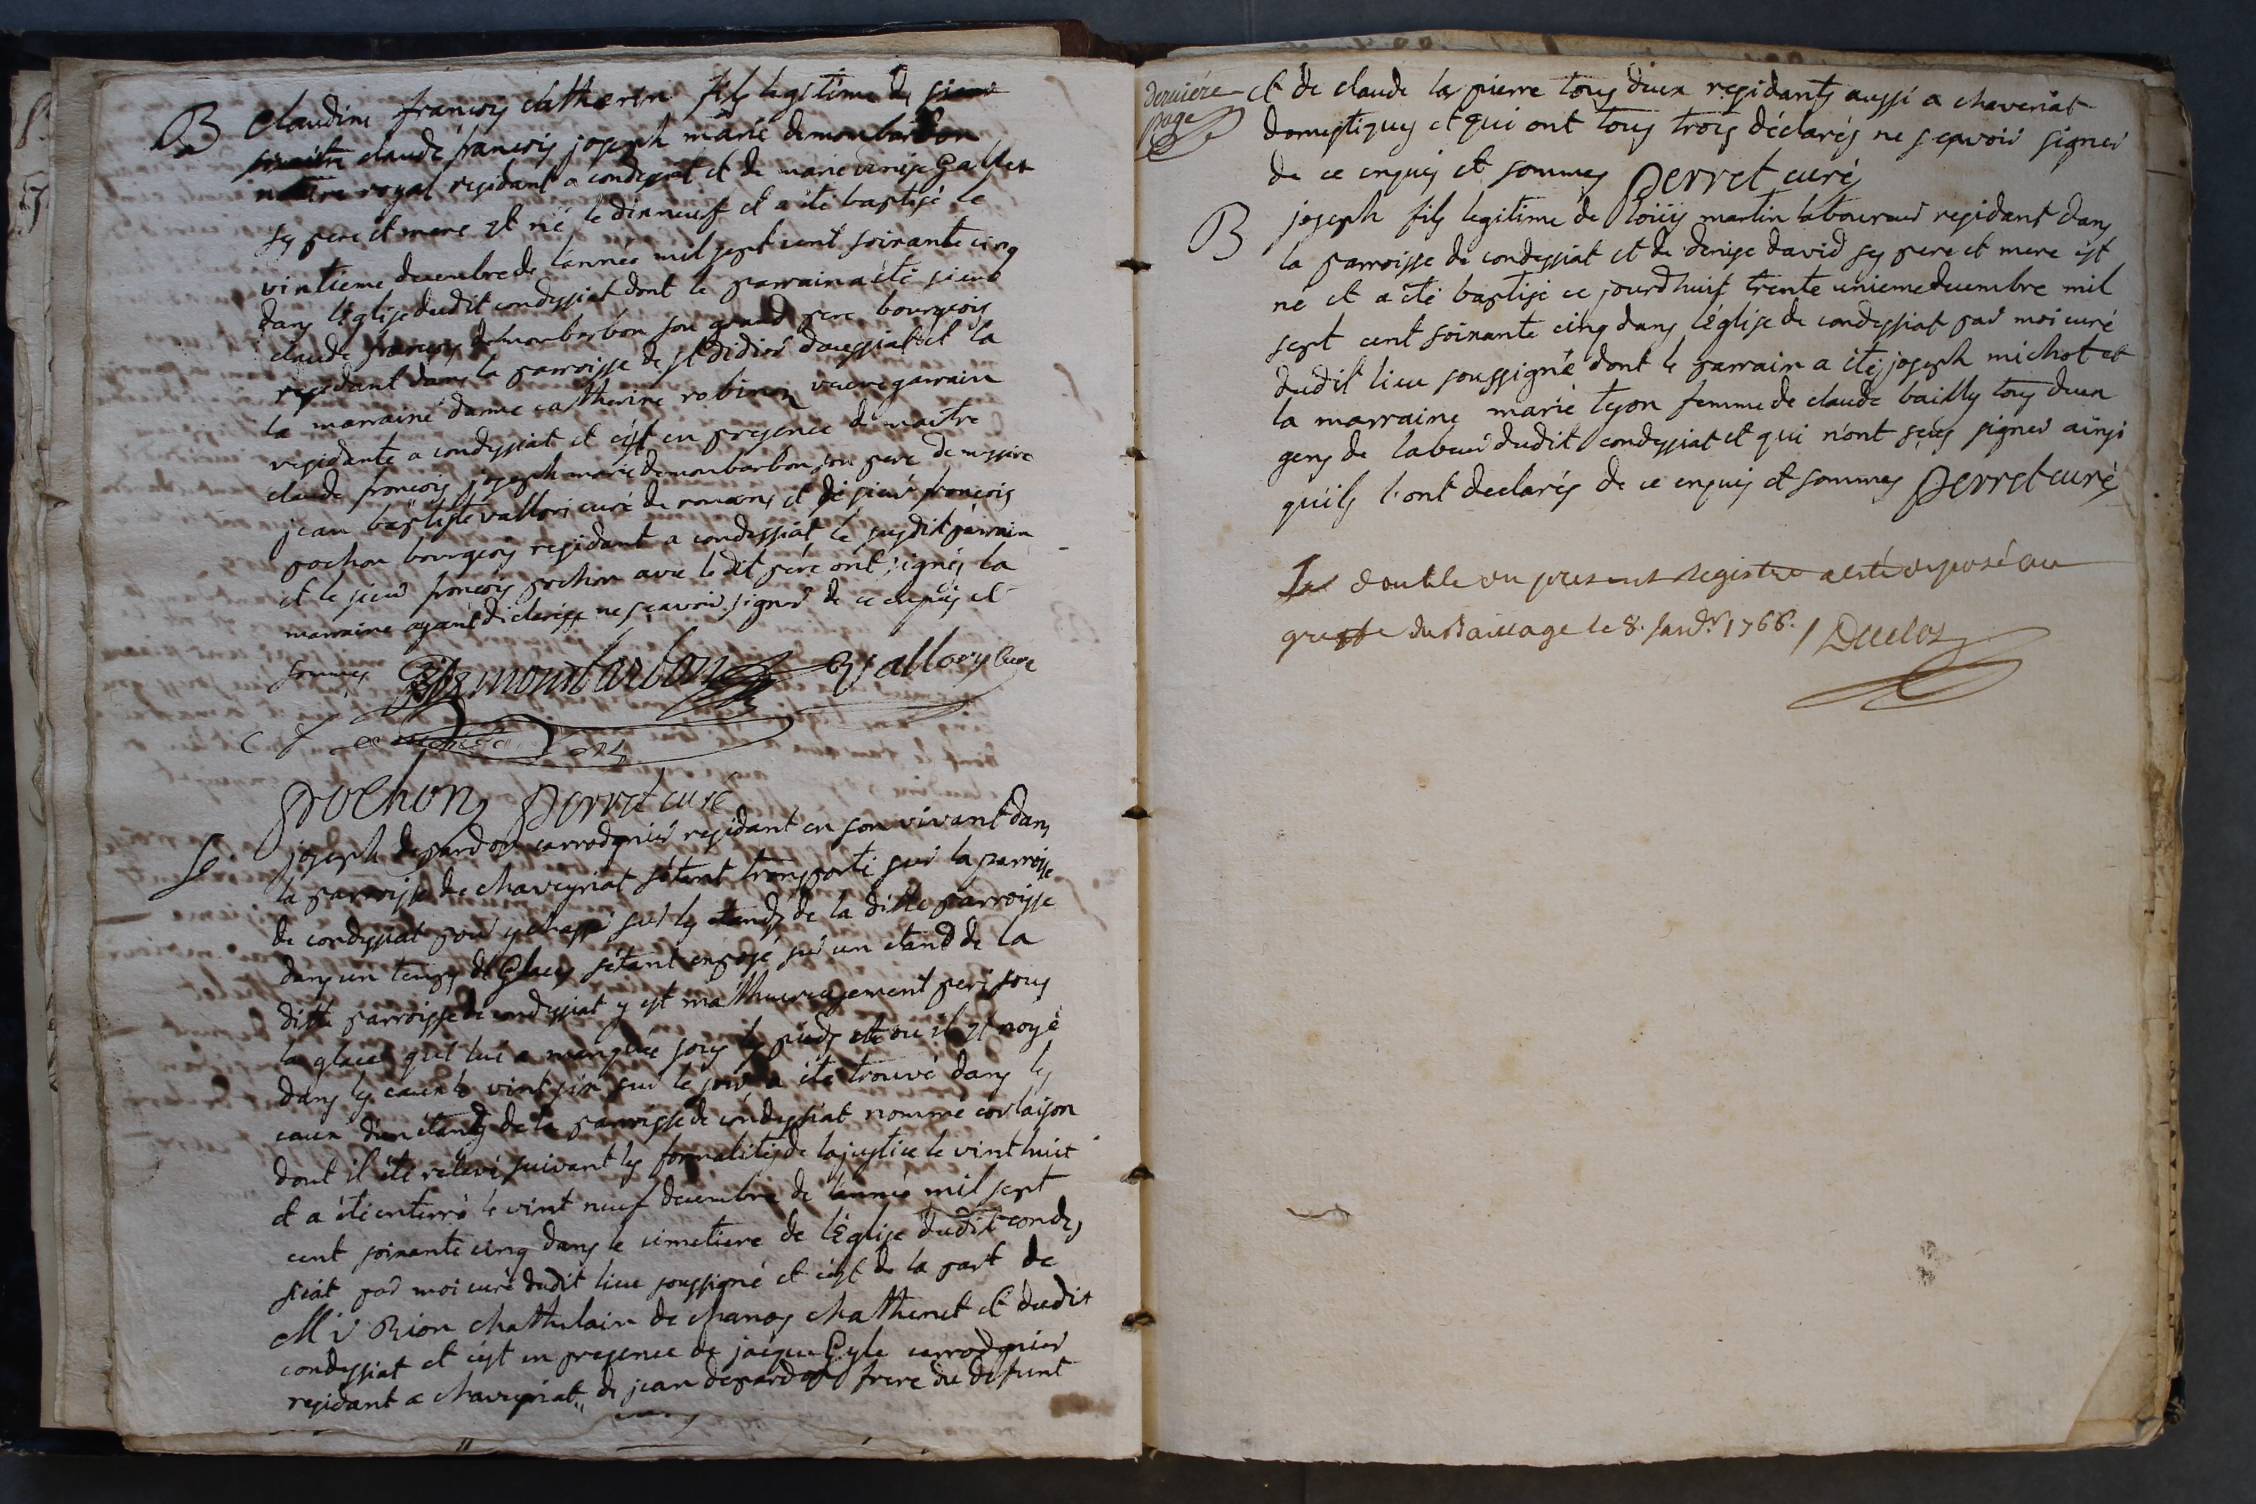 B Claudine françois catherin fils legitime de sieur
maitre claude françois joseph marie demonbarbon
notaire royal residant a condessiat et de marie denise Gallet
ses pere et mere est né le dixneuf et a été baptisé le
vintieme decembre de lannée mil sept cent soixante cinq
dans l'Eglise dudit condessiat dont le parrain a été sieur
claude françois demonbarbon son grand pere bourgeois
residant dans la parroisse de st didier daussiat et la
la marraine dame catherine robin veuve
residante a condessiat et c'est en presence de maitre
claude françois joseph marie demonbarbon son pere de messire
jean baptiste vallori curé de romans et de sieur françois
pochon bourgeois residant a condessiat le susdit parrain
et le sieur françois pochon avec ledit pére ont signés la
marraine ayant déclarée ne sçavoir signer de ce enquis et
sommés Demonbarbon Vallory Curé
pochon perret curé
S joseph depardon carrodgnier residant en son vivant dans
la parroisse de chaveyriat s'étant transporté sur la parroisse
de condessiat pour y chasser sur les etands de la ditte parroisse
dans un temps de Glaces s'étant exposé sur un etand de la
ditte parroisse de condessiat y est malheureusement peri sous
la glace qui lui a manquée sous les pieds et ou il s'est noyé
dans les eaux le vint six sur le soir a été trouvé dans les
eaux d'un étand de la parroisse de condessiat nommé corlaison
dont il été relevé suivant les formalités de la justice le vint huit
et a été enterré le vint neuf decembre de lannée mil sept
cent soixante cinq dans le cimetiere de l'Eglise dudit condes
siat par moi curé dudit lieu soussigné et c'est de la part de
Mr Rion chathelain de chanos chathenet et dudit
condessiat et c'est en presence de jaique Gyle carrodgnier
residant a chaveyriat, de jean depardon frere du defunt
derniére
page
et de claude la pierre tous deux residants aussi a chaveriat
domestiques et qui ont tous trois déclarés ne sçavoir signer
de ce enquis et sommés perret curé
B joseph fils legitime de loüis martin laboureur residant dans
la parroisse de condessiat et de denise david ses pere et mere est
né et a été baptisé ce jourdhuit trente unieme decembre mil
sept cent soixante cinq dans l'Eglise de condessiat par moi curé
dudit lieu soussigné dont le parrain a été joseph michot et
la marraine marie teyon femme de claude bailly tous deux
gens de labeur dudit condessiat et qui n'ont sçus signer ainsi
quils l'ont declarés de ce enquis et sommés perret curé
Le double du present Registre a esté deposé au
greffe du Baillage le 8. Janvr. 1766. Duclos